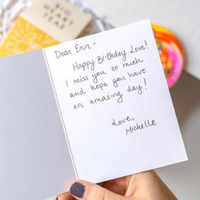 BIG
HEARTS
Dear Erin -
Happy Birthday Love!
I miss you so much
and hope you have
an amazing day!
Love,
Michelle